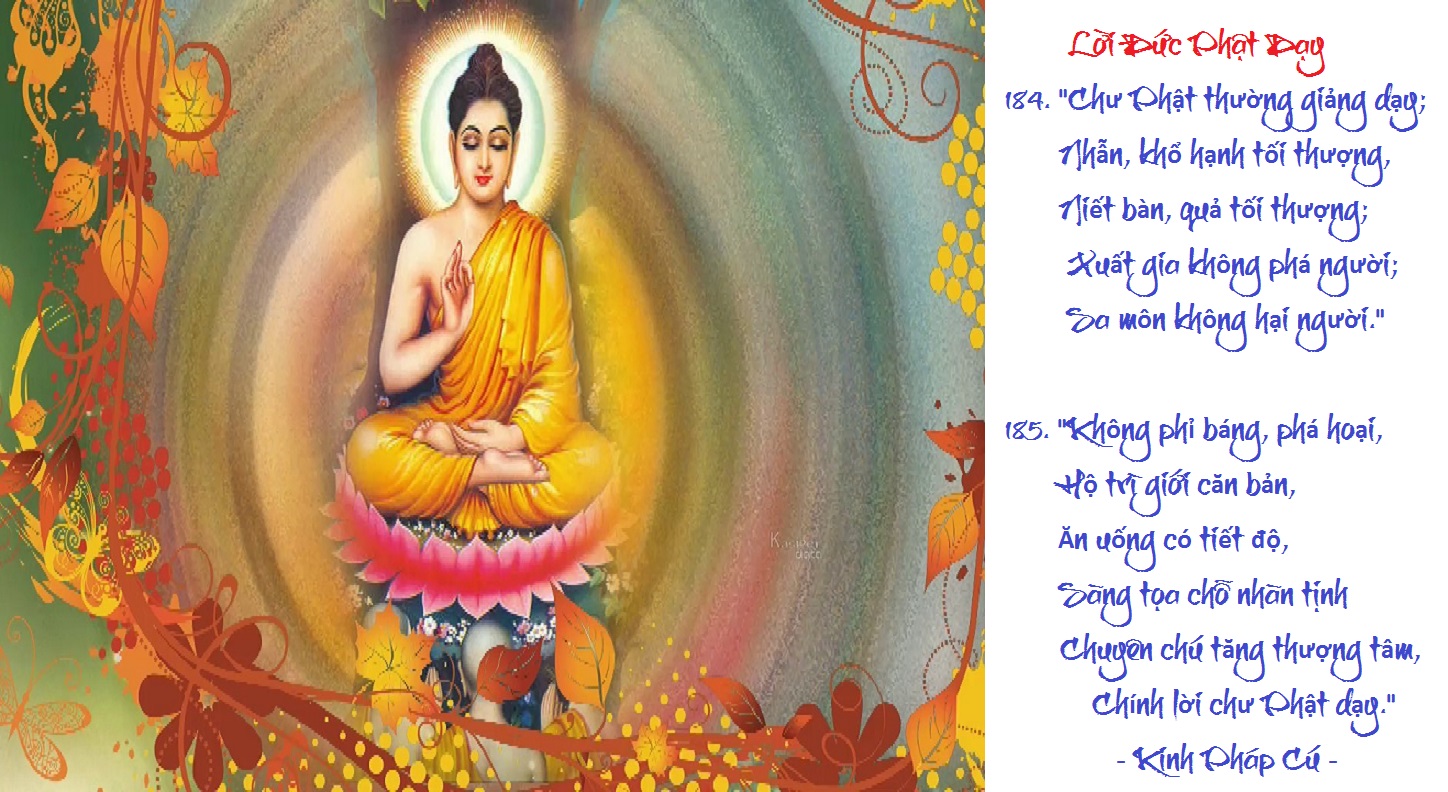 Lời Đức Phật Dạy
184. "Chư Phật thường giảng dạy;
Nhẫn, khổ hạnh tối thượng,
Niết bàn, quả tối thượng;
Xuất gia không phá người;
Sa môn không hại người."
185. "Không phỉ báng, phá hoại,
Hộ trì giới căn bản,
Ăn uống có tiết độ,
Sàng tọa chỗ nhàn tịnh
Chuyên chú tăng thượng tâm,
Chính lời chư Phật dạy."
- Kinh Pháp Cú -